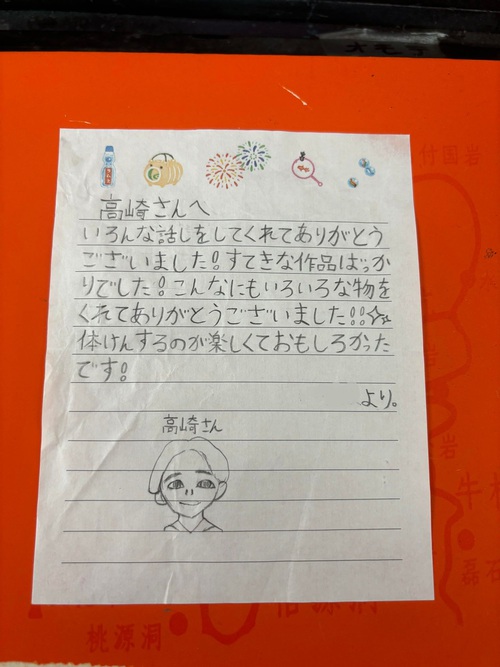 大
付国岩
高崎さんへ
いろんな話しをしてくれてありがとう
ございました!すてきな作品ばっか
りでした!こんなにもいろいろな物を
くれてありがとうございました!!☆☆
体けんするのが楽しくておもしろかった
です!
より。
高崎さん
岩
牛
磊石
桃源洞